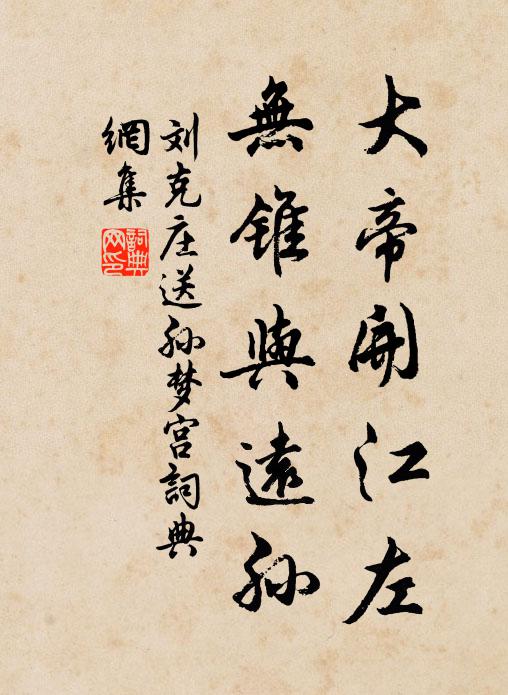 大帝開江左
無錐與遠孙
刘克庄送孙梦官詞典
網集
詞典網印